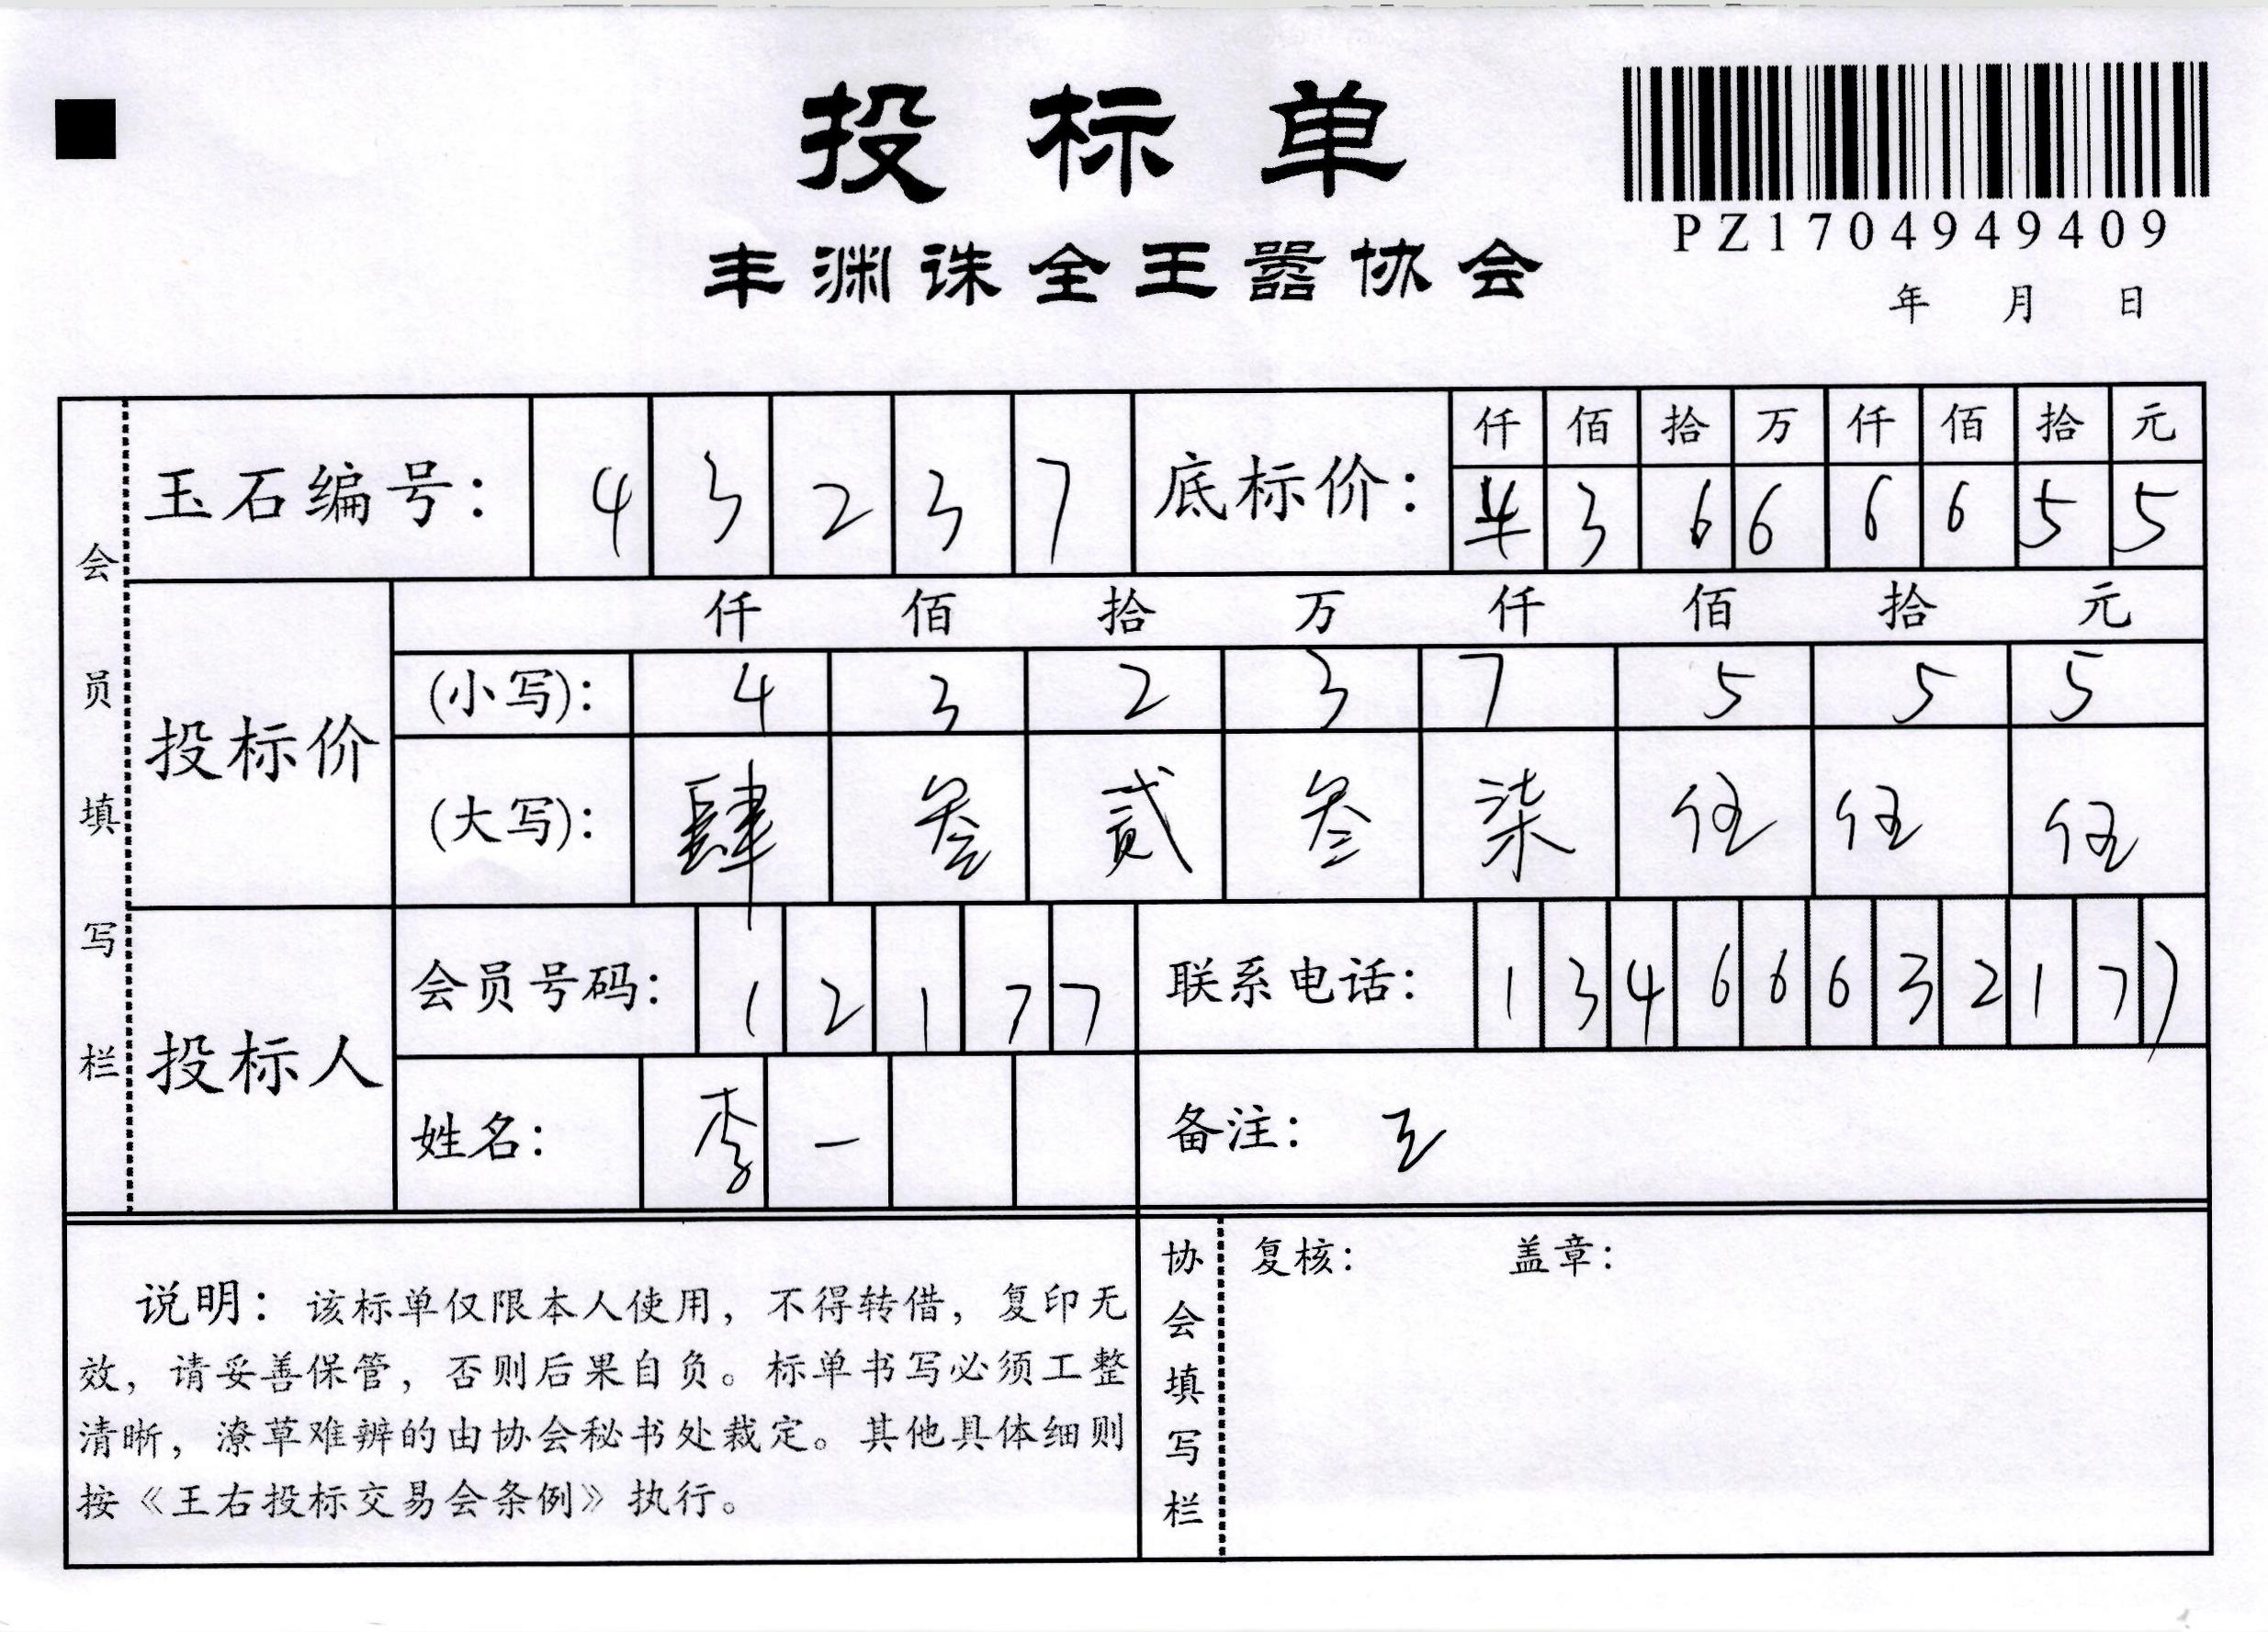 投标单
PZ1704949409
丰渊诛全王嚣协会
年 月 日
会员填写栏
玉石编号: 4 3 2 3 7
底标价: 仟 佰 拾 万 仟 佰 拾 元
4 3 6 6 6 6 5 5
投标价
仟 佰 拾 万 仟 佰 拾 元
(小写): 4 3 2 3 7 5 5 5
(大写): 肆 叁 贰 叁 柒 伍 伍 伍
投标人
会员号码: 1 2 1 7 7
联系电话: 1 3 4 6 6 6 3 2 1 7 7
姓名: 李 一
备注:
说明: 该标单仅限本人使用, 不得转借, 复印无
效, 请妥善保管, 否则后果自负。标单书写必须工整
清晰, 潦草难辨的由协会秘书处裁定。其他具体细则
按《王右投标交易会条例》执行。
协会填写栏
复核: 盖章: